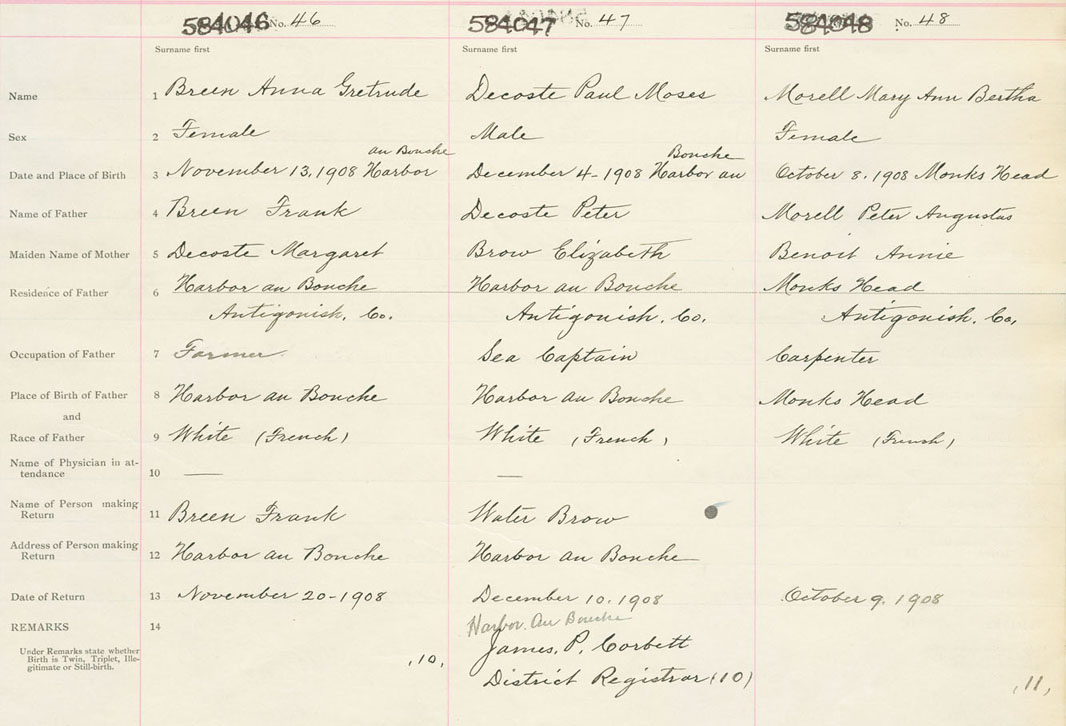 584046 No. 46 584047 No. 47 584048 No. 48
Surname first Surname first Surname first
Name 1 Breen Anna Gretrude Decoste Paul Moses Morell Mary Ann Bertha
Sex 2 Female Male Female
au Bouche Bouche
Date and Place of Birth 3 November 13, 1908 Harbor December 4 - 1908 Harbor au October 8, 1908 Monks Head
Name of Father 4 Breen Frank Decoste Peter Morell Peter Augustus
Maiden Name of Mother 5 Decoste Margaret Brow Elizabeth Benoit Annie
Residence of Father 6 Harbor au Bouche Harbor au Bouche Monks Head
Antigonish, Co. Antigonish, Co. Antigonish, Co.
Occupation of Father 7 Farmer Sea Captain Carpenter
Place of Birth of Father 8 Harbor au Bouche Harbor au Bouche Monks Head
and
Race of Father 9 White (French) White (French) White (French)
Name of Physician in at-
tendance 10 — —
Name of Person making
Return 11 Breen Frank Water Brow
Address of Person making
Return 12 Harbor au Bouche Harbor au Bouche
Date of Return 13 November 20 - 1908 December 10, 1908 October 9, 1908
REMARKS 14 Harbor Au Bouche
Under Remarks state whether James, P. Corbett
Birth is Twin, Triplet, Ille-
gitimate or Still-birth. (10) District Registrar (10) (11)